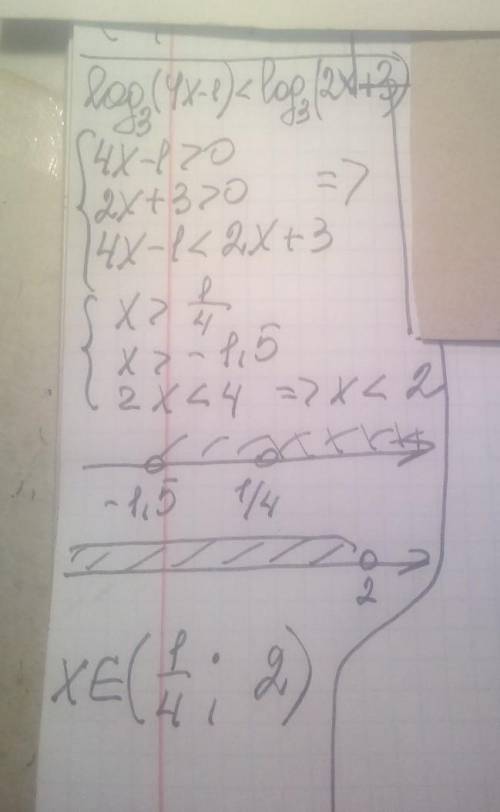 log₃(4x-1)<log₃(2x+3)
4x-1>0
2x+3>0 =>
4x-1<2x+3
x>1/4
x>-1,5
2x<4 => x<2
-1,5 1/4
2
x∈(1/4; 2)